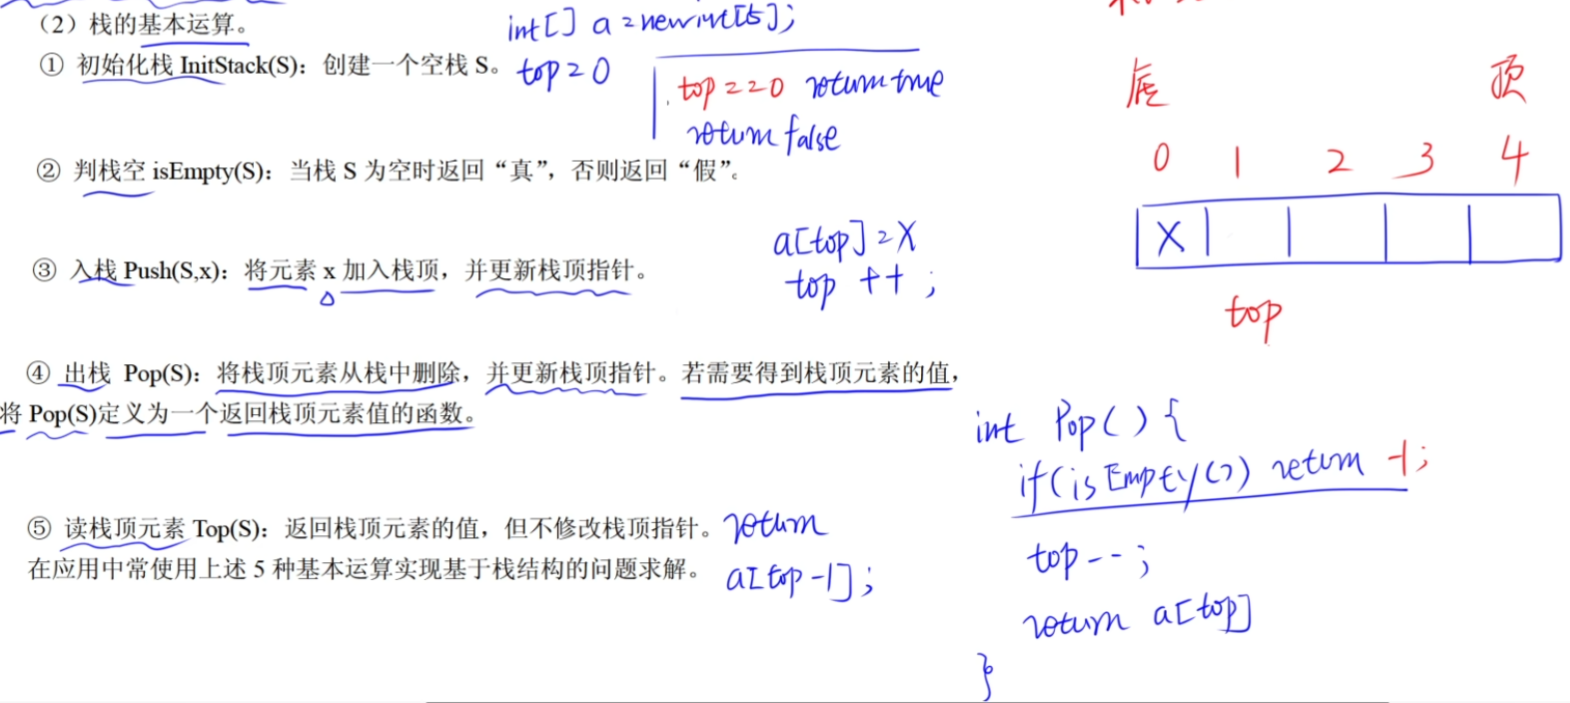 （2）栈的基本运算。
int[] a = new int[5];
① 初始化栈 InitStack(S)：创建一个空栈 S。 top = 0
top == 0 return true
return false
② 判栈空 isEmpty(S)：当栈 S 为空时返回“真”，否则返回“假”。
a[top] = X
③ 入栈 Push(S,x)：将元素 x 加入栈顶，并更新栈顶指针。 top ++ ;
底 顶
0 1 2 3 4
X
top
④ 出栈 Pop(S)：将栈顶元素从栈中删除，并更新栈顶指针。若需要得到栈顶元素的值，
将 Pop(S)定义为一个返回栈顶元素值的函数。
int Pop() {
if(isEmpty()) return -1;
top--;
return a[top]
}
⑤ 读栈顶元素 Top(S)：返回栈顶元素的值，但不修改栈顶指针。 return
在应用中常使用上述 5 种基本运算实现基于栈结构的问题求解。 a[top-1];